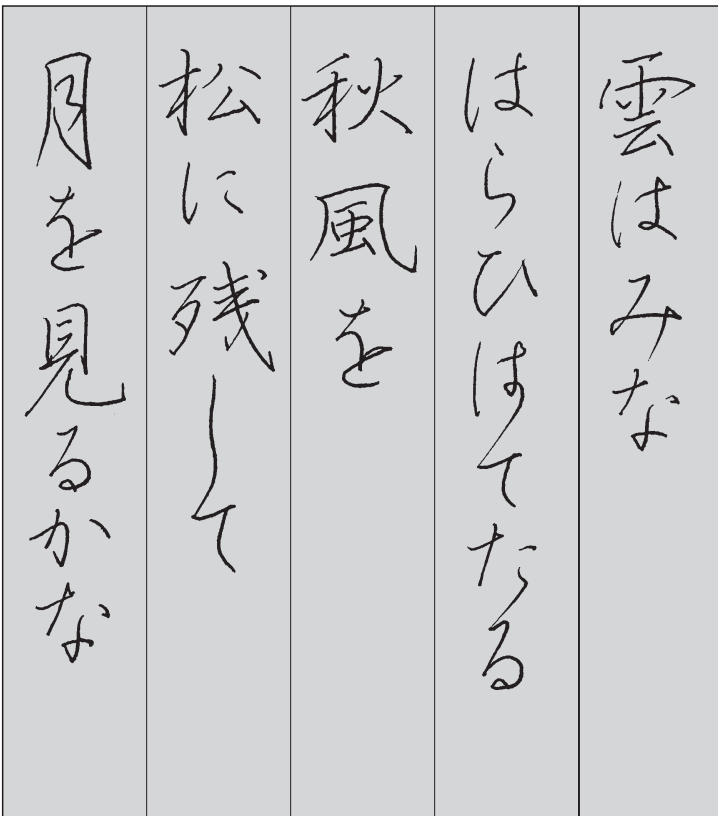 雲はみな
はらひはてたる
秋風を
松に残して
月を見るかな